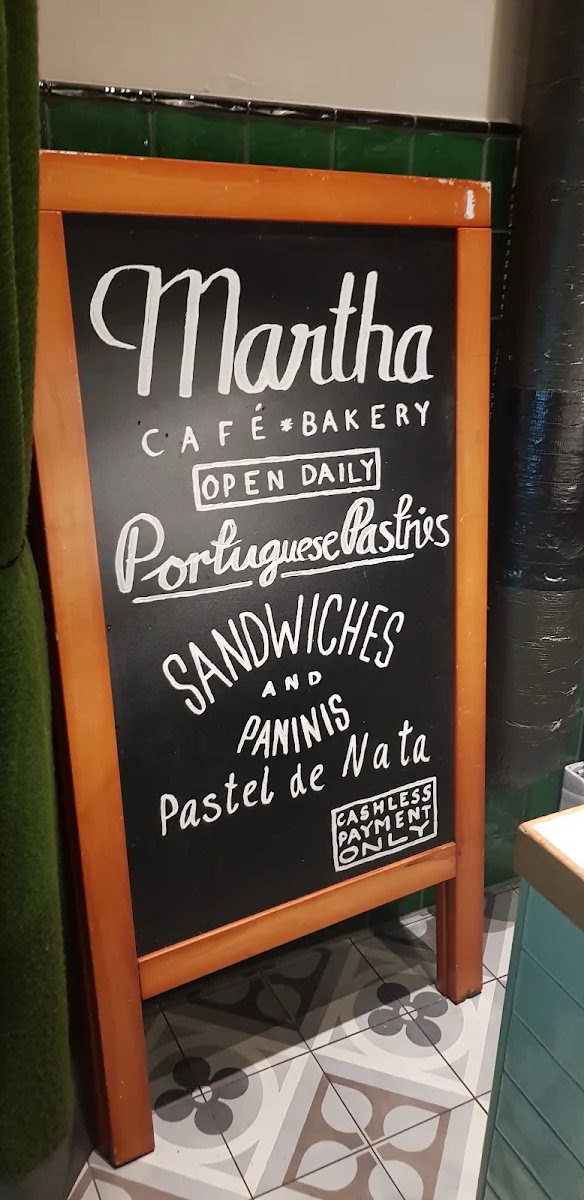 Martha
CAFÉ * BAKERY
OPEN DAILY
Portuguese Pastries
SANDWICHES
AND
PANINIS
Pastel de Nata
CASHLESS
PAYMENT
ONLY